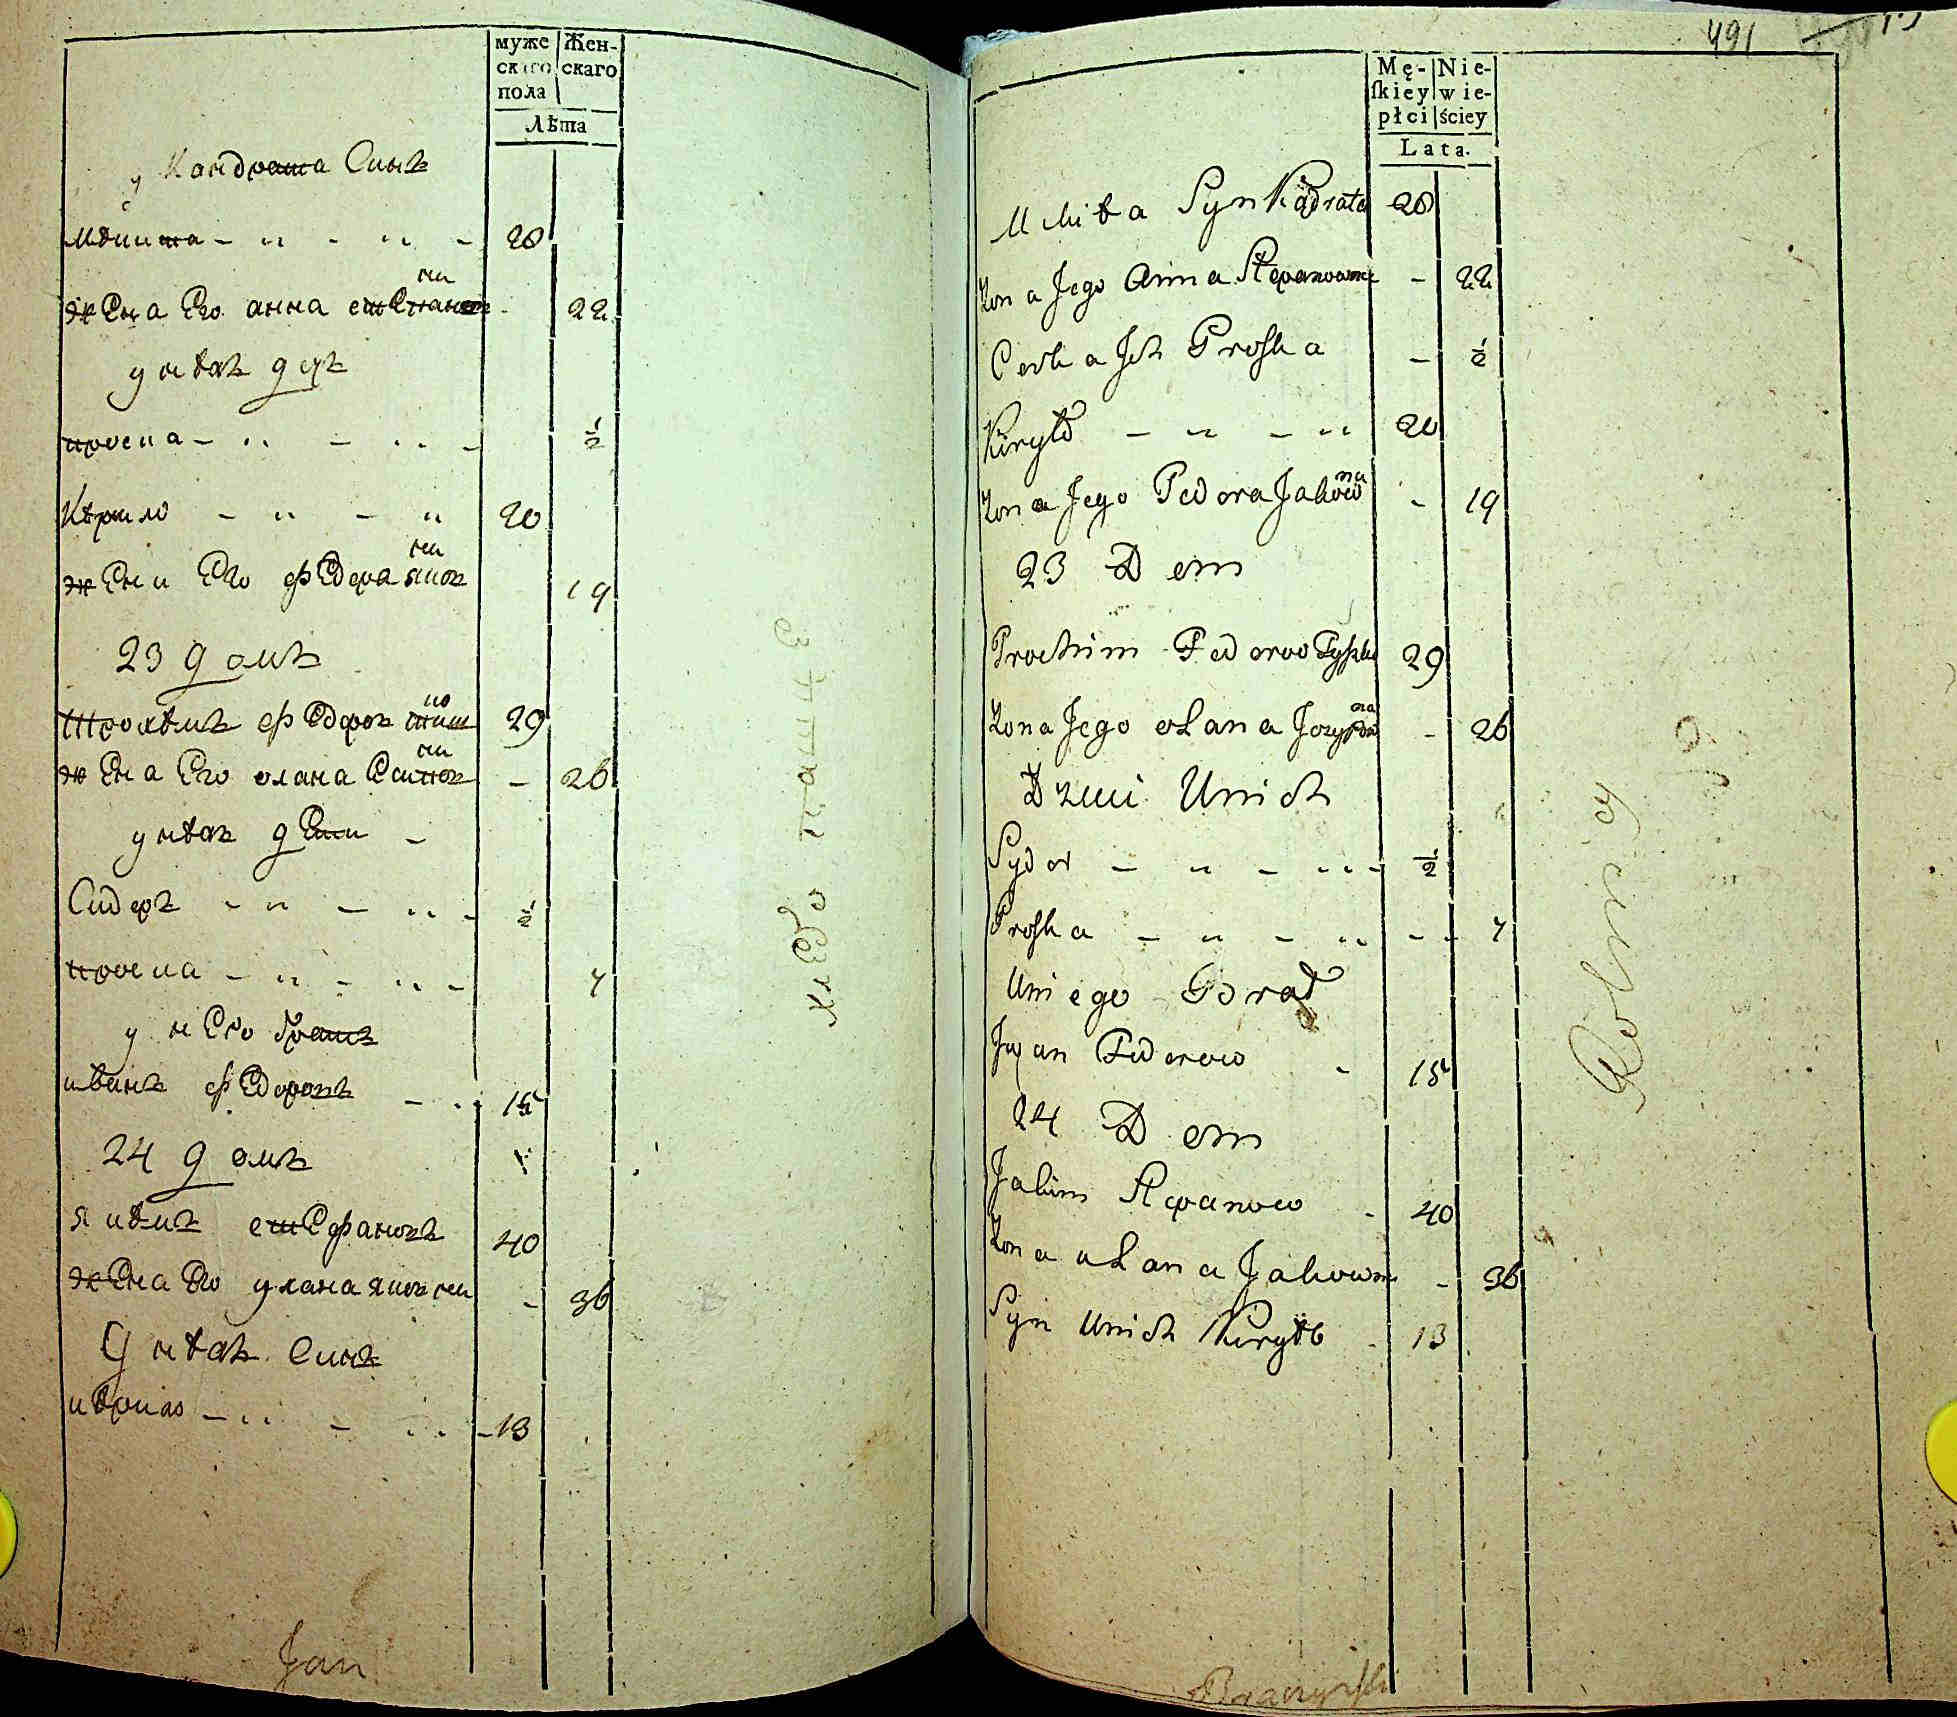 муже
скаго
пола
Жен-
скаго
Лѣта
у Кандрата Синъ
Мікита - „ - „ - 28
жена Его анна степановна - 22
у ніхъ дочъ
проска - „ - „ - ½
Кірило - „ - „ 20
жена Его федора яковна 19
23 домъ
Прохімъ федоровъ 29
жена Его олана - 26
у ніхъ дети -
Сидоръ - „ - „ - ½
проска - „ - „ - 7
у него братъ
іванъ федоровъ - „ 15
24 домъ
якімъ стефановъ 40
жена Его улана яковна - 36
У ніхъ Синъ
кірило - „ - „ - 13
Jan
491
Mę-
skiey
płci
Nie-
wie-
ściey
Lata.
Mikita Syn Kądrata 28
Zona Jego Anna Stepanowna - 22
Corka Jch Proska - ½
Kiryło - „ - „ 20
Zona Jego Fedora Jakowna - 19
23 Dom
Prochim Fedorow 29
Zona Jego oLana - 26
Dzieci Unich
Sydor - „ - „ - ½
Proska - „ - „ - - 7
Uniego Brat
Jwan Fedorow - 15
24 Dom
Jakim Stepanow - 40
Zona uLana Jakowna - 36
Syn Unich Kiryło - 13